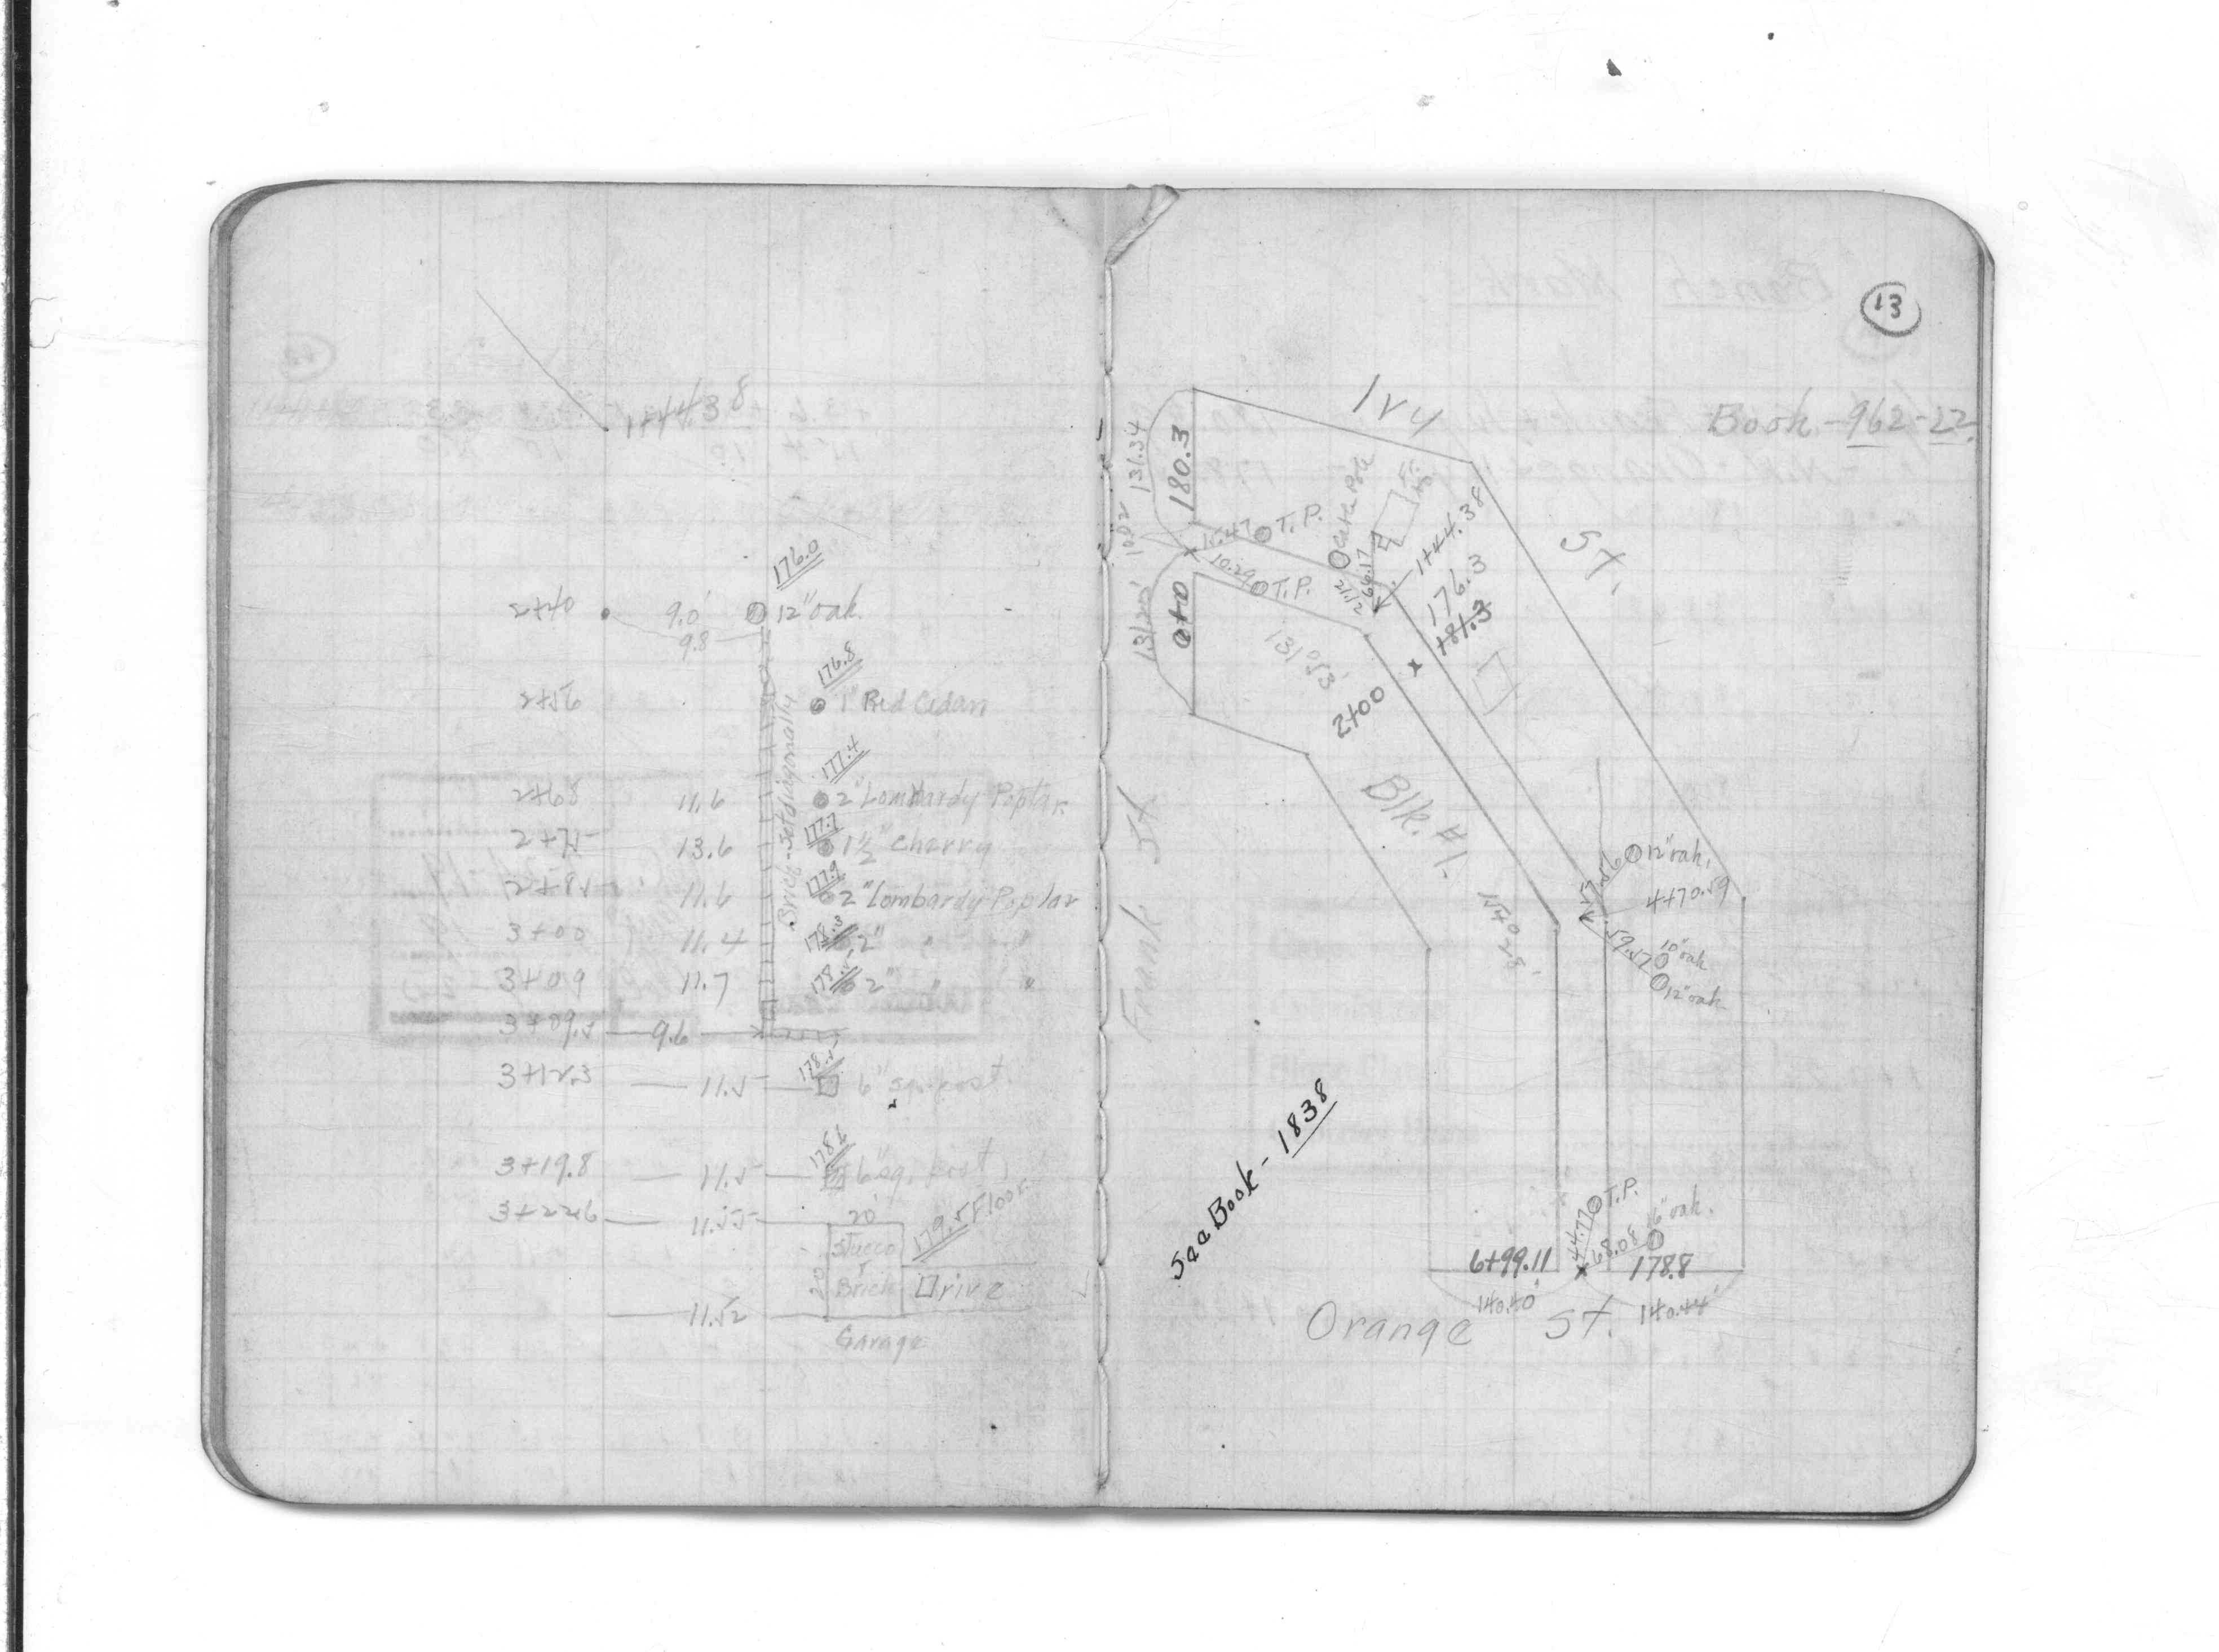 1+44.38
176.0
2+40 9.0' 12" oak.
9.8
176.8
2+56 1" Red Cedar
177.4
2+68 11.6 2" Lombardy Poplar
177.7
2+75 13.6 1½" Cherry
177.9
2+85 11.6 2" Lombardy Poplar
178.3
3+00 11.4 2" " "
3+09 11.7 2" " "
3+09.5 9.6
Brick-Set diagonally
178.5
3+12.3 11.5 6" sq. post.
3+19.8 11.5 6" sq. post
3+22.6 11.55 20'
179.5 Floor
Stucco
Brick
20
Drive
11.52
Garage
13
Book-962-22.
Ivy
St.
131.34
180.3
10.02
15.47 T.P.
10.29 T.P.
0+0
Cable Pole
21.12
66.17
1+44.38
176.3
+81.3
131°53'
2+00
Blk. #1.
Frank St
12" oak.
4+70.59
59.57
10" oak
12" oak
See Book - 1838
44.77 T.P.
68.08 6" oak.
6+99.11 178.8
140.40' 140.44'
Orange St.